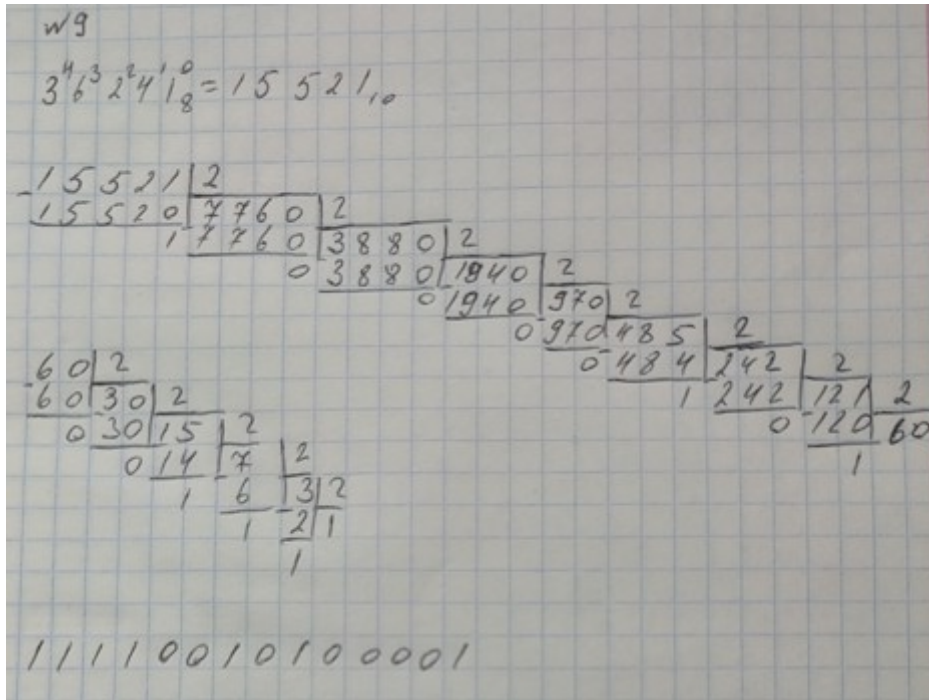 №9
3⁴6³2²4¹1⁰₈ = 15 521₁₀
-15521|2
15520|7760|2
1 7760|3880|2
0 3880|1940|2
0 1940|970|2
0 -970|485|2
0 -484|242|2
1 -242|121|2
0 -120|60
1
-60|2
60|30|2
0 -30|15|2
0 14|7|2
1 -6|3|2
1 -2|1
1
11110010100001